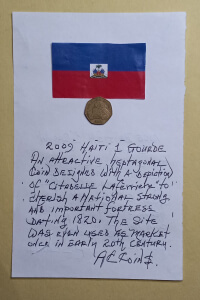 2009 HAITI 1 GOURDE
AN ATTRACTIVE HEPTAGONAL
COIN DESIGNED WITH A DEPICTION
OF "CITADELLE LAFERRIERE" TO
CHERISH A NATIONAL STRONG
AND IMPORTANT FORTRESS
DATING 1820. THE SITE
WAS EVEN USED AS MARKET
ONCE IN EARLY 20TH CENTURY.
ACCOIN$.